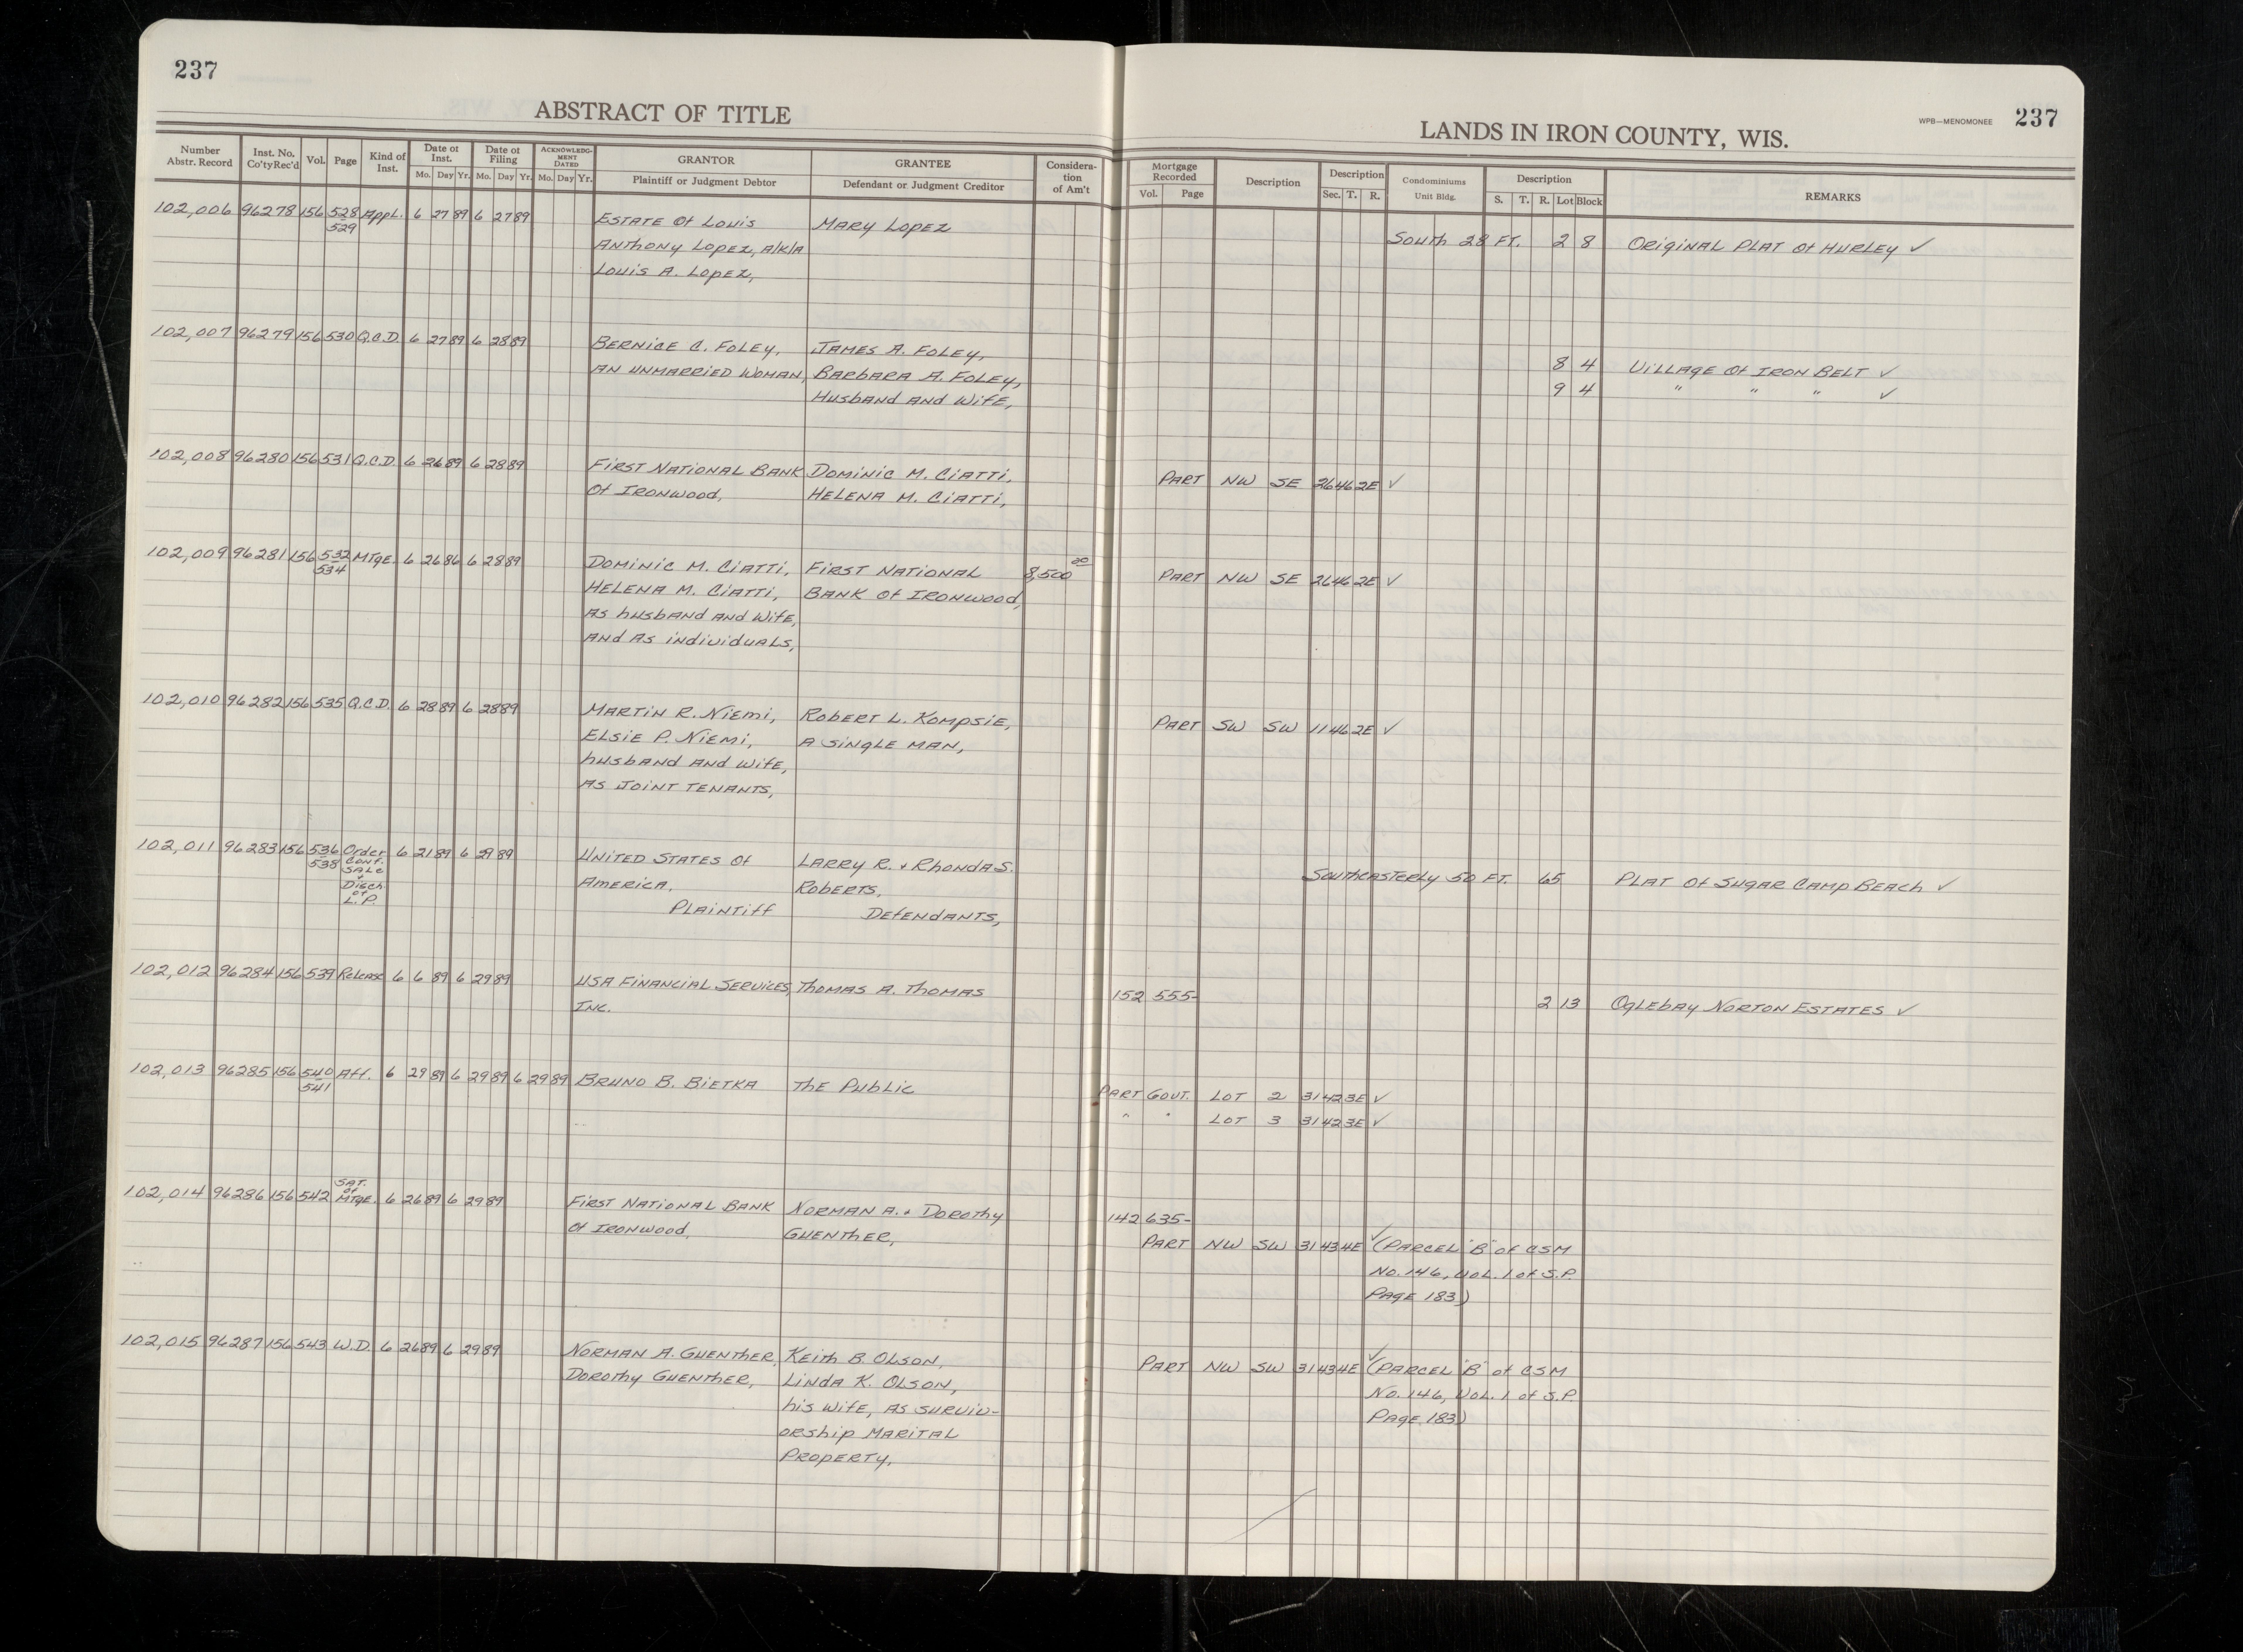 237
ABSTRACT OF TITLE
LANDS IN IRON COUNTY, WIS.
WPB—MENOMONEE 237
Number Abstr. Record
Inst. No. Co'ty Rec'd
Vol.
Page
Kind of Inst.
Date of Inst.
Mo. Day Yr.
Date of Filing
Mo. Day Yr.
ACKNOWLEDG-MENT DATED
Mo. Day Yr.
GRANTOR
Plaintiff or Judgment Debtor
GRANTEE
Defendant or Judgment Creditor
Considera-tion of Am't
Mortgage Recorded
Vol. Page
Description
Description
Sec. T. R.
Condominiums
Unit Bldg.
Description
S. T. R. Lot Block
REMARKS
102,006 96278 156 528 Appl. 6 27 89 6 27 89 ESTATE Of Louis MARY LOPEZ
529 ANTHONY LOPEZ, A/K/A South 28 FT. 2 8 ORIGINAL PLAT Of HURLEY ✓
Louis A. LOPEZ,
102,007 96279 156 530 Q.C.D. 6 27 89 6 28 89 BERNICE C. FOLEY, JAMES A. FOLEY,
AN UNMARRIED WOMAN, BARBARA A. FOLEY, 8 4 VILLAGE Of IRON BELT ✓
HusbAND AND Wife, 9 4 " " ✓
102,008 96280 156 531 Q.C.D. 6 26 89 6 28 89 FIRST NATIONAL BANK DOMINIC M. CIATTI,
Of IRONWOOD, HELENA M. CIATTI, PART NW SE 26 46 2E ✓
102,009 96281 156 532 MTGE. 6 26 86 6 28 89 DOMINIC M. CIATTI, FIRST NATIONAL 8,500 00
534 HELENA M. CIATTI, BANK Of IRONWOOD, PART NW SE 26 46 2E ✓
AS husbAND AND Wife,
AND AS individuALS,
102,010 96282 156 535 Q.C.D. 6 28 89 6 28 89 MARTIN R. NIEMI, ROBERT L. KOMPSIE,
ELSIE P. NIEMI, A SINGLE MAN, PART SW SW 11 46 2E ✓
husbAND AND Wife,
AS JOINT TENANTS,
102,011 96283 156 536 Order 6 21 89 6 29 89 UNITED STATES Of LARRY R. + RhONDA S.
538 Conf. SALE + Disch. of L.P. AMERICA, ROBERTS, SOUTHEASTERLY 50 FT. 65 PLAT Of SUGAR CAMP BEACH ✓
PLAINTIFF DEFENDANTS,
102,012 96284 156 539 Release 6 6 89 6 29 89 USA FINANCIAL SERVICES, THOMAS A. THOMAS
INC. 152 555- 2 13 OGLEBAY NORTON ESTATES ✓
102,013 96285 156 540 Aff. 6 29 89 6 29 89 6 29 89 BRUNO B. BIETKA THE PUBLIC
541 PART GOVT. LOT 2 31 42 3E ✓
" " LOT 3 31 42 3E ✓
102,014 96286 156 542 SAT. of MTGE. 6 26 89 6 29 89 FIRST NATIONAL BANK NORMAN A. + DOROTHY
Of IRONWOOD, GUENTHER, 142 635-
PART NW SW 31 43 4E ✓ (PARCEL "B" of CSM
No. 146, VOL. 1 of S.P.
PAGE 183)
102,015 96287 156 543 W.D. 6 26 89 6 29 89 NORMAN A. GUENTHER, KEITH B. OLSON,
DOROTHY GUENTHER, LINDA K. OLSON, PART NW SW 31 43 4E ✓ (PARCEL "B" of CSM
his wife, AS SURVIV- No. 146, VOL. 1 of S.P.
ORSHIP MARITAL PAGE 183)
PROPERTY,